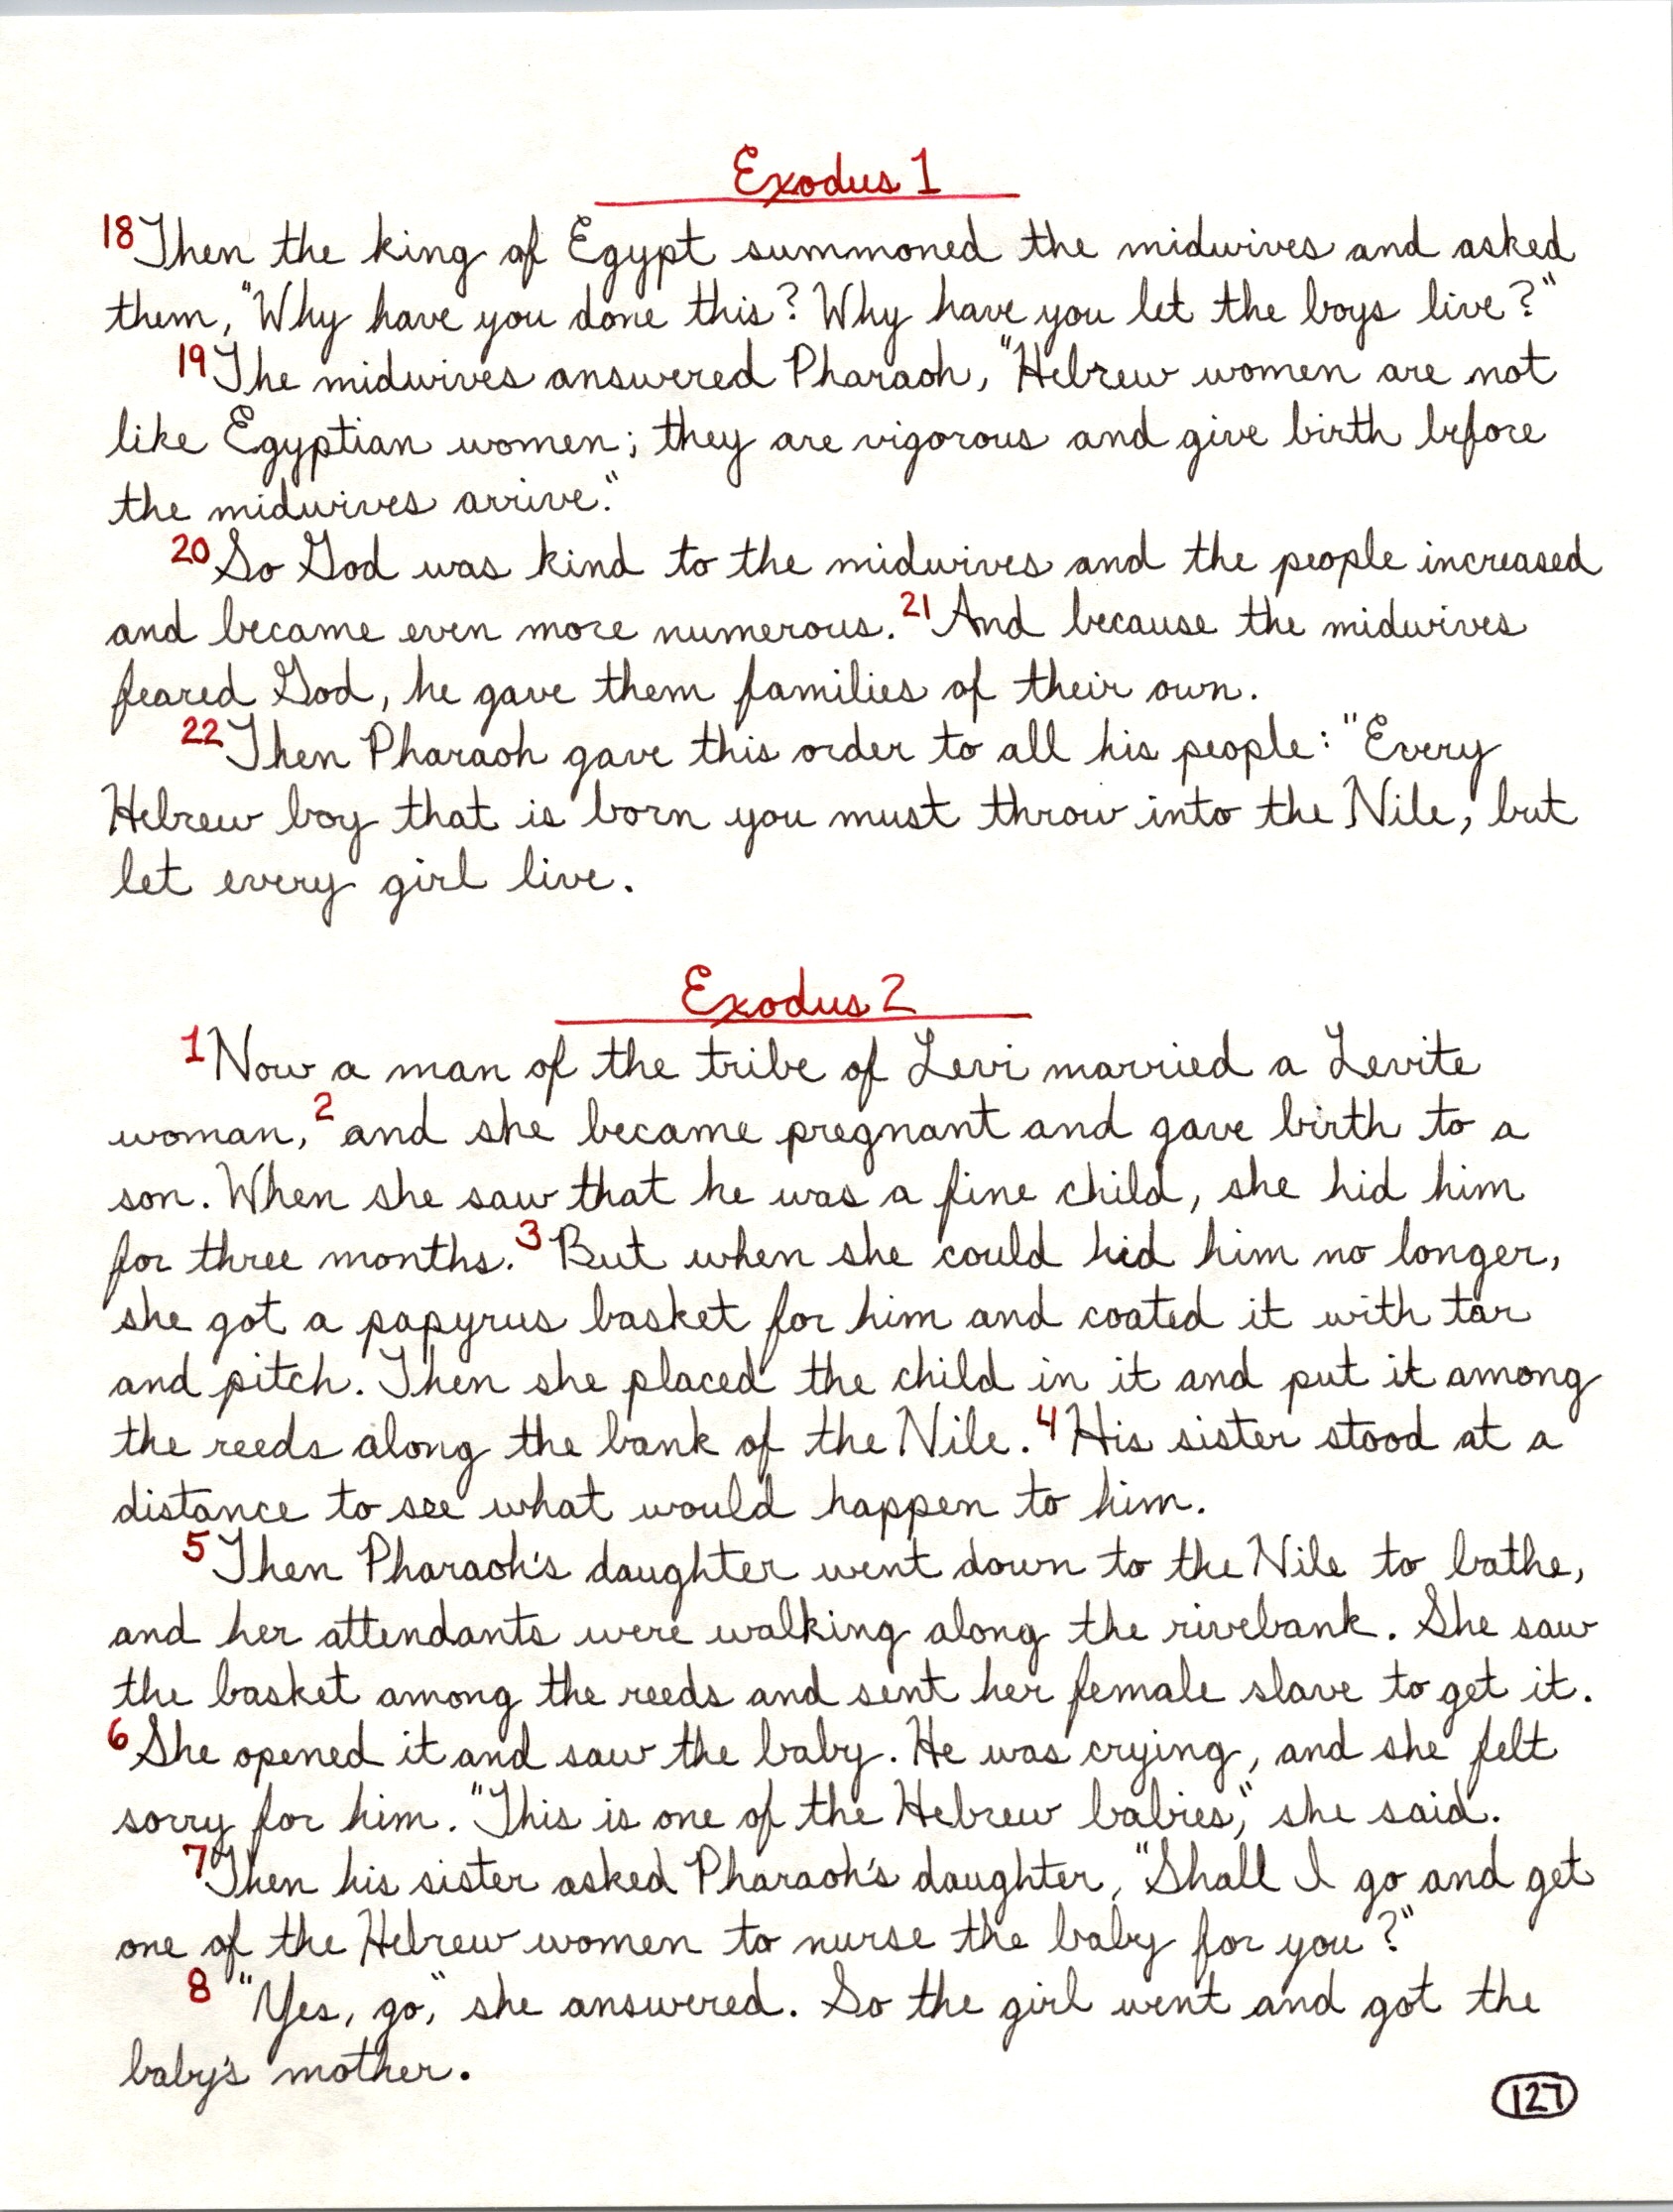 Exodus 1
18 Then the king of Egypt summoned the midwives and asked
them, "Why have you done this? Why have you let the boys live?"
19 The midwives answered Pharaoh, "Hebrew women are not
like Egyptian women; they are vigorous and give birth before
the midwives arrive."
20 So God was kind to the midwives and the people increased
and became even more numerous. 21 And because the midwives
feared God, he gave them families of their own.
22 Then Pharaoh gave this order to all his people: "Every
Hebrew boy that is born you must throw into the Nile, but
let every girl live.
Exodus 2
1 Now a man of the tribe of Levi married a Levite
woman, 2 and she became pregnant and gave birth to a
son. When she saw that he was a fine child, she hid him
for three months. 3 But when she could hid him no longer,
she got a papyrus basket for him and coated it with tar
and pitch. Then she placed the child in it and put it among
the reeds along the bank of the Nile. 4 His sister stood at a
distance to see what would happen to him.
5 Then Pharaoh's daughter went down to the Nile to bathe,
and her attendants were walking along the rivebank. She saw
the basket among the reeds and sent her female slave to get it.
6 She opened it and saw the baby. He was crying, and she felt
sorry for him. "This is one of the Hebrew babies," she said.
7 Then his sister asked Pharaoh's daughter, "Shall I go and get
one of the Hebrew women to nurse the baby for you?"
8 "Yes, go," she answered. So the girl went and got the
baby's mother.
127